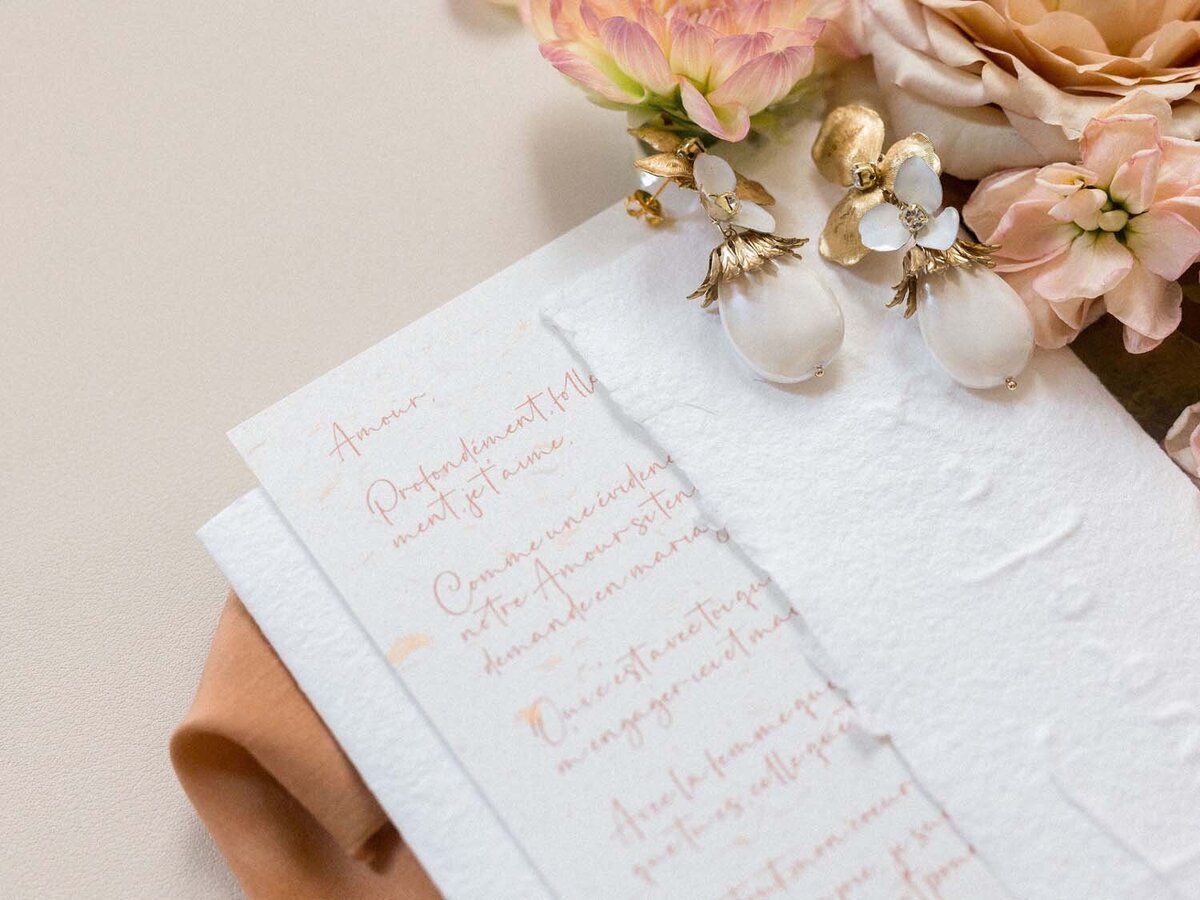 Amour,
Profondément, folle
ment, je t'aime.
Comme une évidenc
notre Amour si ten
demande en maria
Oui c'est avec toi qu
m'engager ici et mai
Avec la femme que
que tu es, celle que
tout mon coeur
je su